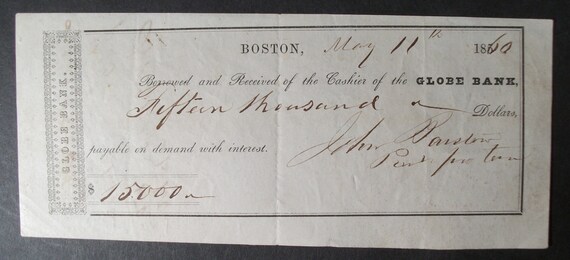 GLOBE BANK.
BOSTON, May 11th 1860
Borrowed and Received of the Cashier of the GLOBE BANK,
Fifteen thousand Dollars,
payable on demand with interest.
John
$ 15000